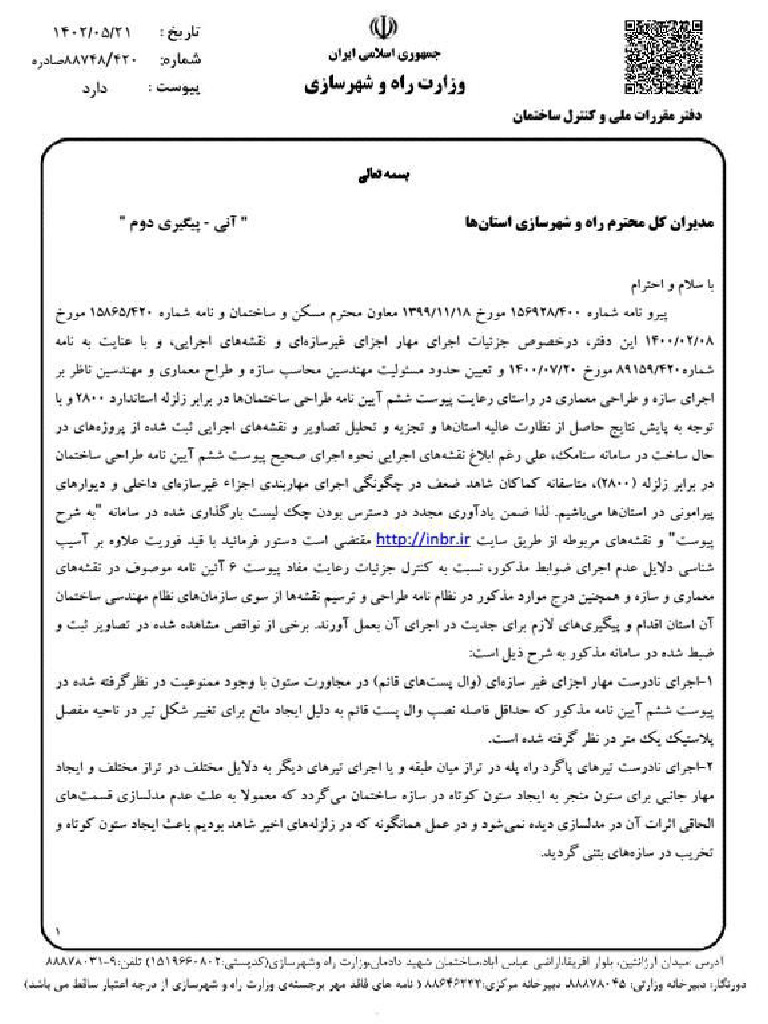 جمهوری اسلامی ایران
وزارت راه و شهرسازی
دفتر مقررات ملی و کنترل ساختمان
تاریخ : ۱۴۰۲/۰۵/۲۱
شماره: ۸۸۷۴۸/۴۲۰صادره
پیوست : دارد
بسمه تعالی
مدیران کل محترم راه و شهرسازی استان‌ها " آنی - پیگیری دوم "
با سلام و احترام
پیرو نامه شماره ۱۵۶۹۲۸/۴۰۰ مورخ ۱۳۹۹/۱۱/۱۸ معاون محترم مسکن و ساختمان و نامه شماره ۱۵۸۶۵/۴۲۰ مورخ
۱۴۰۰/۰۲/۰۸ این دفتر، درخصوص جزئیات اجرای مهار اجزای غیرسازه‌ای و نقشه‌های اجرایی، و با عنایت به نامه
شماره۸۹۱۵۹/۴۲۰ مورخ ۱۴۰۰/۰۷/۲۰ و تعیین حدود مسئولیت مهندسین محاسب سازه و طراح معماری و مهندسین ناظر بر
اجرای سازه و طراحی معماری در راستای رعایت پیوست ششم آیین نامه طراحی ساختمان‌ها در برابر زلزله استاندارد ۲۸۰۰ و با
توجه به پایش نتایج حاصل از نظارت عالیه استان‌ها و تجزیه و تحلیل تصاویر و نقشه‌های اجرایی ثبت شده از پروژه‌های در
حال ساخت در سامانه سنامک، علی رغم ابلاغ نقشه‌های اجرایی نحوه اجرای صحیح پیوست ششم آیین نامه طراحی ساختمان
در برابر زلزله (۲۸۰۰)، متاسفانه کماکان شاهد ضعف در چگونگی اجرای مهاربندی اجزاء غیرسازه‌ای داخلی و دیوارهای
پیرامونی در استان‌ها می‌باشیم. لذا ضمن یادآوری مجدد در دسترس بودن چک لیست بارگذاری شده در سامانه "به شرح
پیوست" و نقشه‌های مربوطه از طریق سایت http://inbr.ir مقتضی است دستور فرمائید با قید فوریت علاوه بر آسیب
شناسی دلایل عدم اجرای ضوابط مذکور، نسبت به کنترل جزئیات رعایت مفاد پیوست ۶ آئین نامه موصوف در نقشه‌های
معماری و سازه و همچنین درج موارد مذکور در نظام نامه طراحی و ترسیم نقشه‌ها از سوی سازمان‌های نظام مهندسی ساختمان
آن استان اقدام و پیگیری‌های لازم برای جدیت در اجرای آن بعمل آورند. برخی از نواقص مشاهده شده در تصاویر ثبت و
ضبط شده دو سامانه مذکور به شرح ذیل است:
۱-اجرای نادرست مهار اجزای غیر سازه‌ای (وال پست‌های قائم) در مجاورت ستون با وجود ممنوعیت در نظرگرفته شده در
پیوست ششم آیین نامه مذکور که حداقل فاصله نصب وال پست قائم به دلیل ایجاد مانع برای تغییر شکل تیر در ناحیه مفصل
پلاستیک یک متر در نظر گرفته شده است.
۲-اجرای نادرست تیرهای پاگرد راه پله در تراز میان طبقه و یا اجرای تیرهای دیگر به دلایل مختلف در تراز مختلف و ایجاد
مهار جانبی برای ستون منجر به ایجاد ستون کوتاه در سازه ساختمان می‌گردد که معمولا به علت عدم مدلسازی قسمت‌های
الحاقی اثرات آن در مدلسازی دیده نمی‌شود و در عمل همانگونه که در زلزله‌های اخیر شاهد بودیم باعث ایجاد ستون کوتاه و
تخریب در سازه‌های بتنی گردید.
۱
آدرس :میدان آرژانتین، بلوار آفریقا،اراضی عباس آباد،ساختمان شهید دادمان،وزارت راه وشهرسازی(کدپستی:۱۵۱۹۶۶۰۸۰۲) تلفن:۹-۸۸۸۷۸۰۳۱
دورنگار: دبیرخانه وزارتی: ۸۸۸۷۸۰۴۵، دبیرخانه مرکزی:۸۸۶۴۶۲۲۲ ( نامه های فاقد مهر برجسته‌ی وزارت راه و شهرسازی از درجه اعتبار ساقط می باشد)